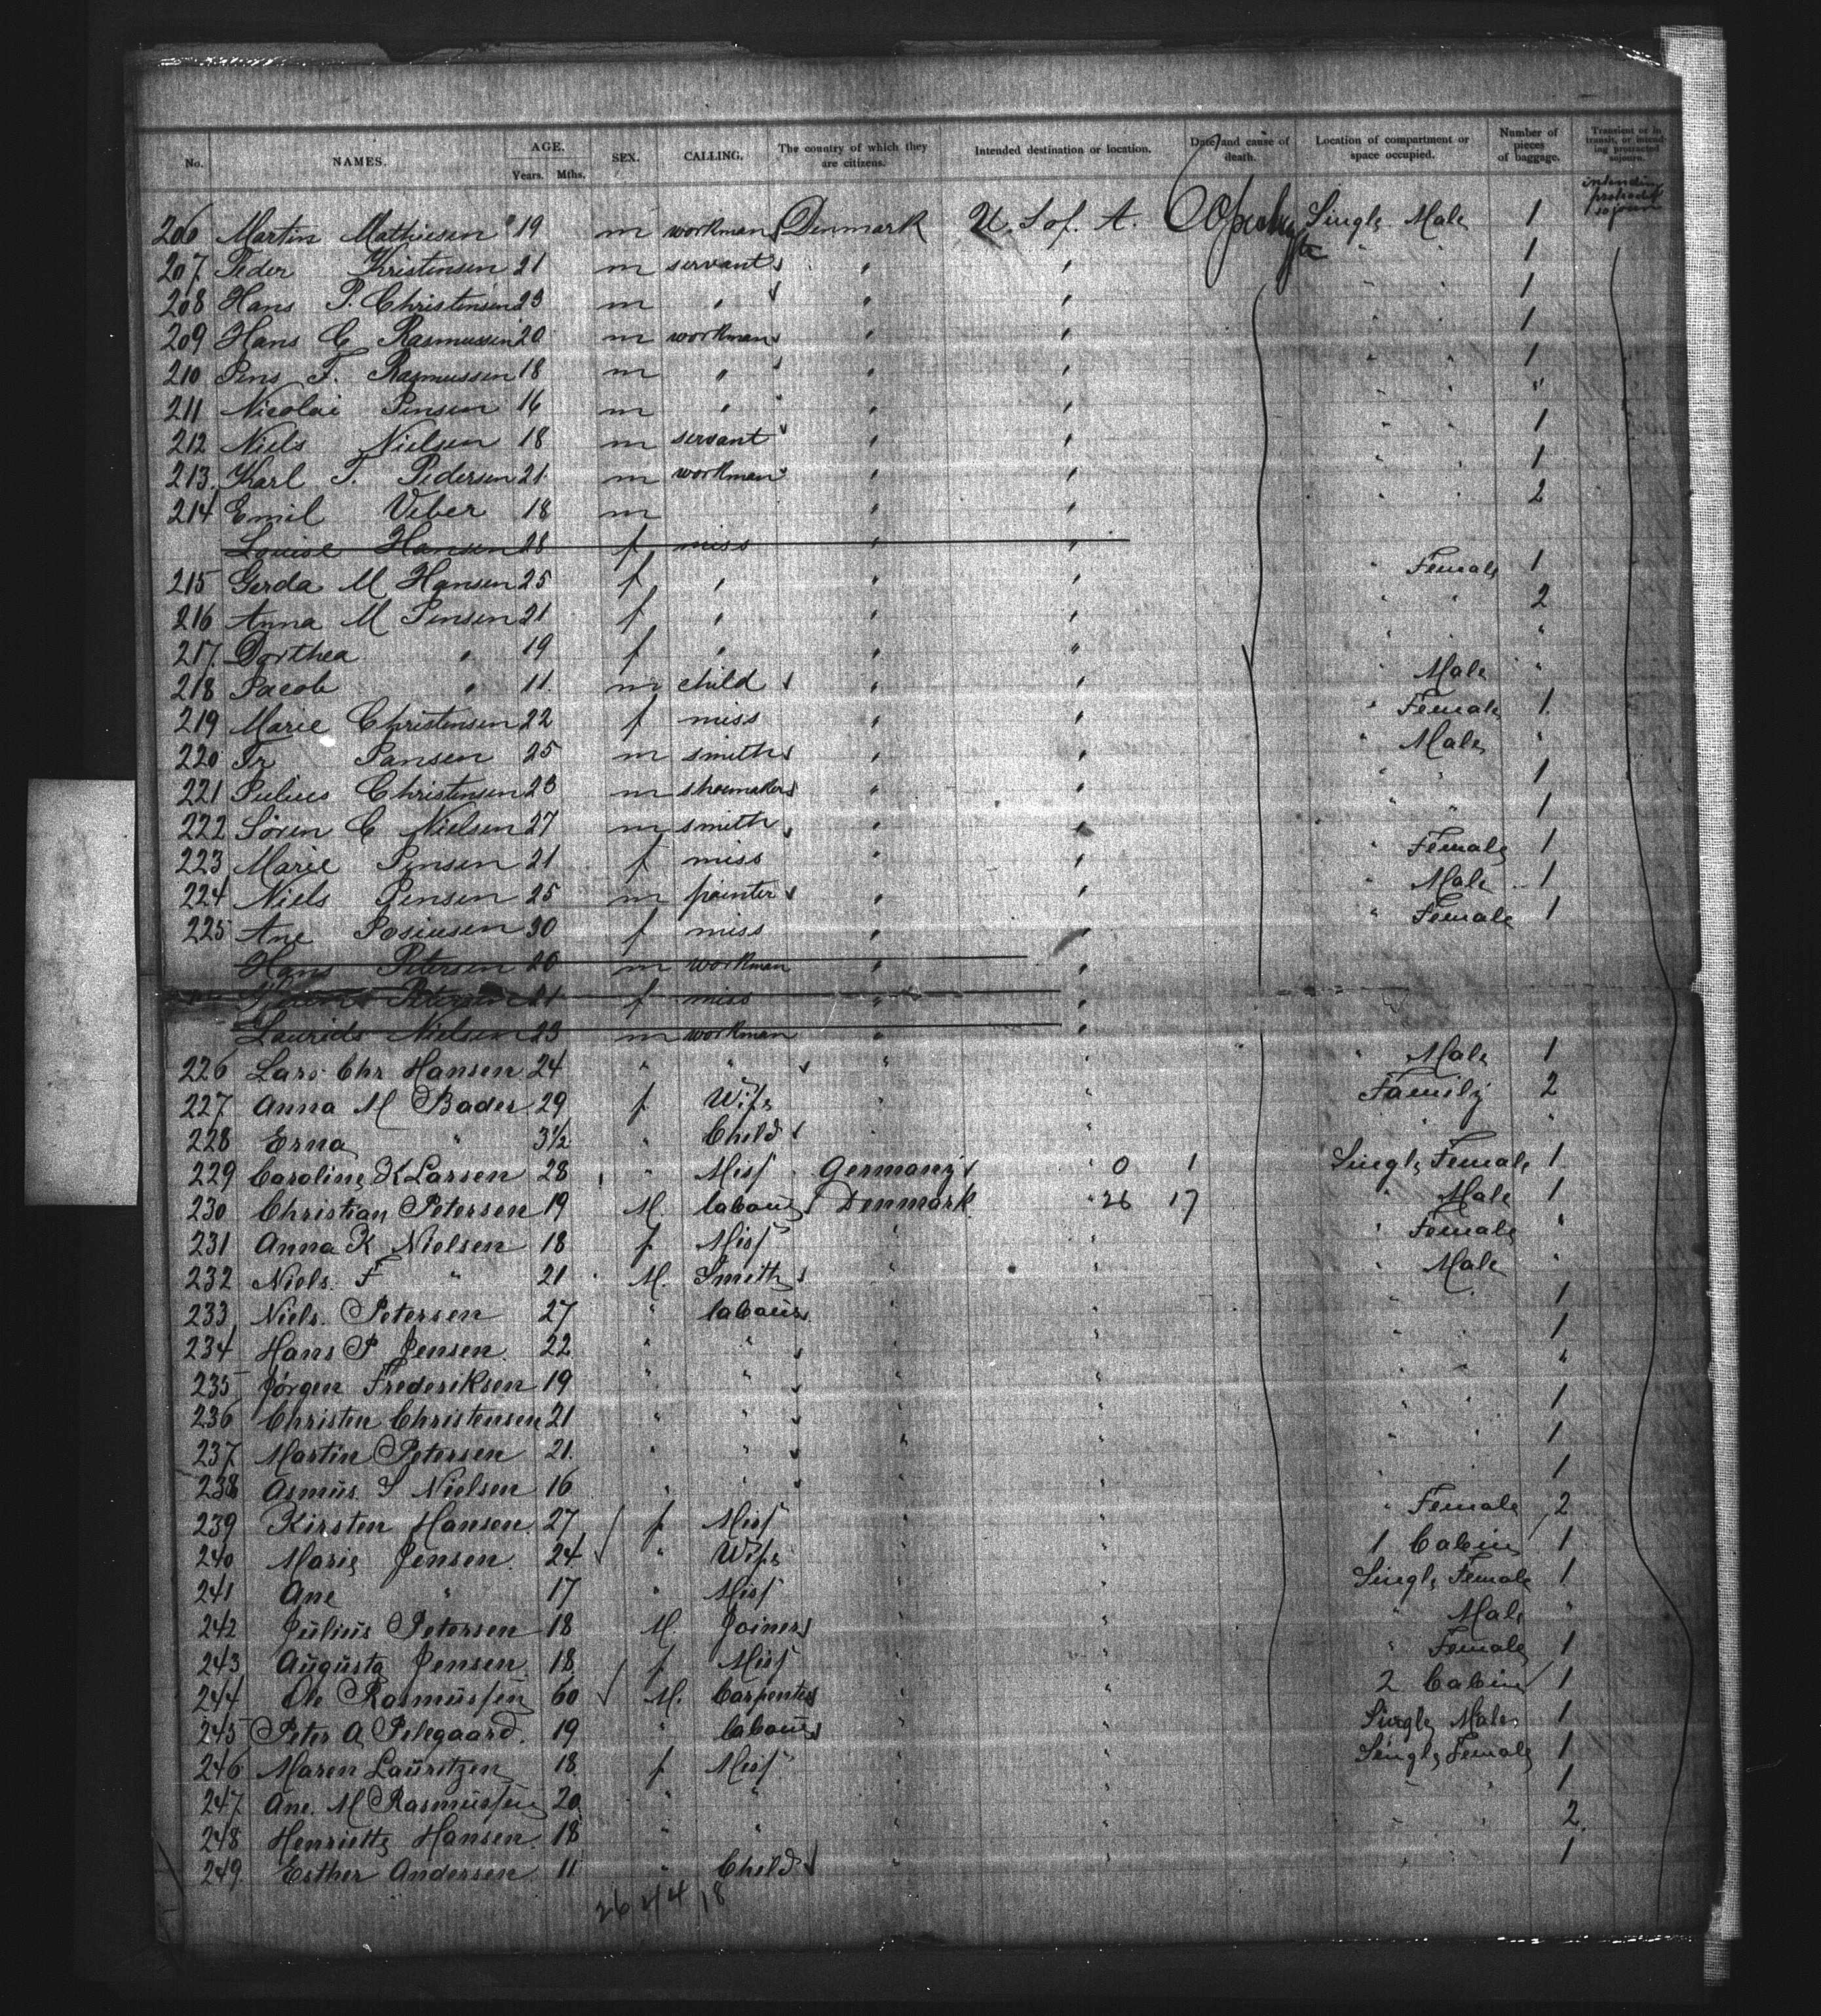 No. NAMES. AGE. Years. Mths. SEX. CALLING. The country of which they are citizens. Intended destination or location. Date and cause of death. Location of compartment or space occupied. Number of pieces of baggage. Transient or in transit, or intending protracted sojourn.
intending protracted sojourn
206 Martin Mathiesen 19 m workman Denmark U. S of. A. Single Male 1
207 Peder Kristensen 21 m servant " " " " 1
208 Hans P. Christensen 23 m " " " " " 1
209 Hans C Rasmussen 20 m workman " " " " 1
210 Jens F. Rasmussen 18 m " " " " " 1
211 Nicolai Jensen 16 m " " " " " "
212 Niels Nielsen 18 m servant " " " " 1
213 Karl T. Pedersen 21 m workman " " " " 1
214 Emil Veber 18 m " " " " 2
Louise Hansen 28 f miss " "
215 Gerda M Hansen 25 f " " " " Female 1
216 Anna M Jensen 21 f " " " " " 2
217 Dorthea " 19 f " " " " " "
218 Jacob " 11 m child " " " Male "
219 Marie Christensen 22 f miss " " " Female 1
220 Fr Jansen 25 m smith " " " Male "
221 Julius Christensen 23 m shoemaker " " " " 1
222 Sören C Nielsen 27 m smith " " " " 1
223 Marie Jensen 21 f miss " " " Female 1
224 Niels Jensen 25 m painter " " " Male 1
225 Ane Josiusen 30 f miss " " " Female 1
Hans Petersen 20 m workman " "
Petersen 21 f miss " "
Laurids Nielsen 23 m workman " "
226 Lars Chr Hansen 24 " " " " " Male 1
227 Anna M Bader 29 f Wife " " Family 2
228 Erna " 3½ " Child " " " "
229 Caroline K Larsen 28 " Miss Germany " 0 1 Single Female 1
230 Christian Petersen 19 M. labourer Denmark " 26 17 " Male 1
231 Anna K Nielsen 18 f Miss " " " Female "
232 Niels. F " 21 M. Smith " " " Male "
233 Niels. Petersen 27 " labourer " " " " 1
234 Hans P Jensen 22 " " " " " " 1
235 Jörgen Frederiksen 19 " " " " " " "
236 Christen Christensen 21 " " " " " " 1
237 Martin Petersen 21 " " " " " " 1
238 Asmus S Nielsen 16 " " " " " " 1
239 Kirsten Hansen 27 f Miss " " " Female 2
240 Marie Jensen 24 " Wife " " 1 Cabin 1
241 Ane " 17 " Miss " " Single Female 1
242 Julius Petersen 18 M. Joiner " " " Male "
243 Augusta Jensen 18 f Miss " " " Female 1
244 Ole Rasmussen 60 M. Carpenter " " 2 Cabin 1
245 Peter A Pilegaard. 19 " labourer " " Single Male 1
246 Maren Lauritzen 18 f Miss " " Single Female 1
247 Ane. M Rasmussen 20 " " " " " " 1
248 Henriette Hansen 18 " " " " " " 2
249 Esther Andersen 11 " Child " " " " 1
26 44 18